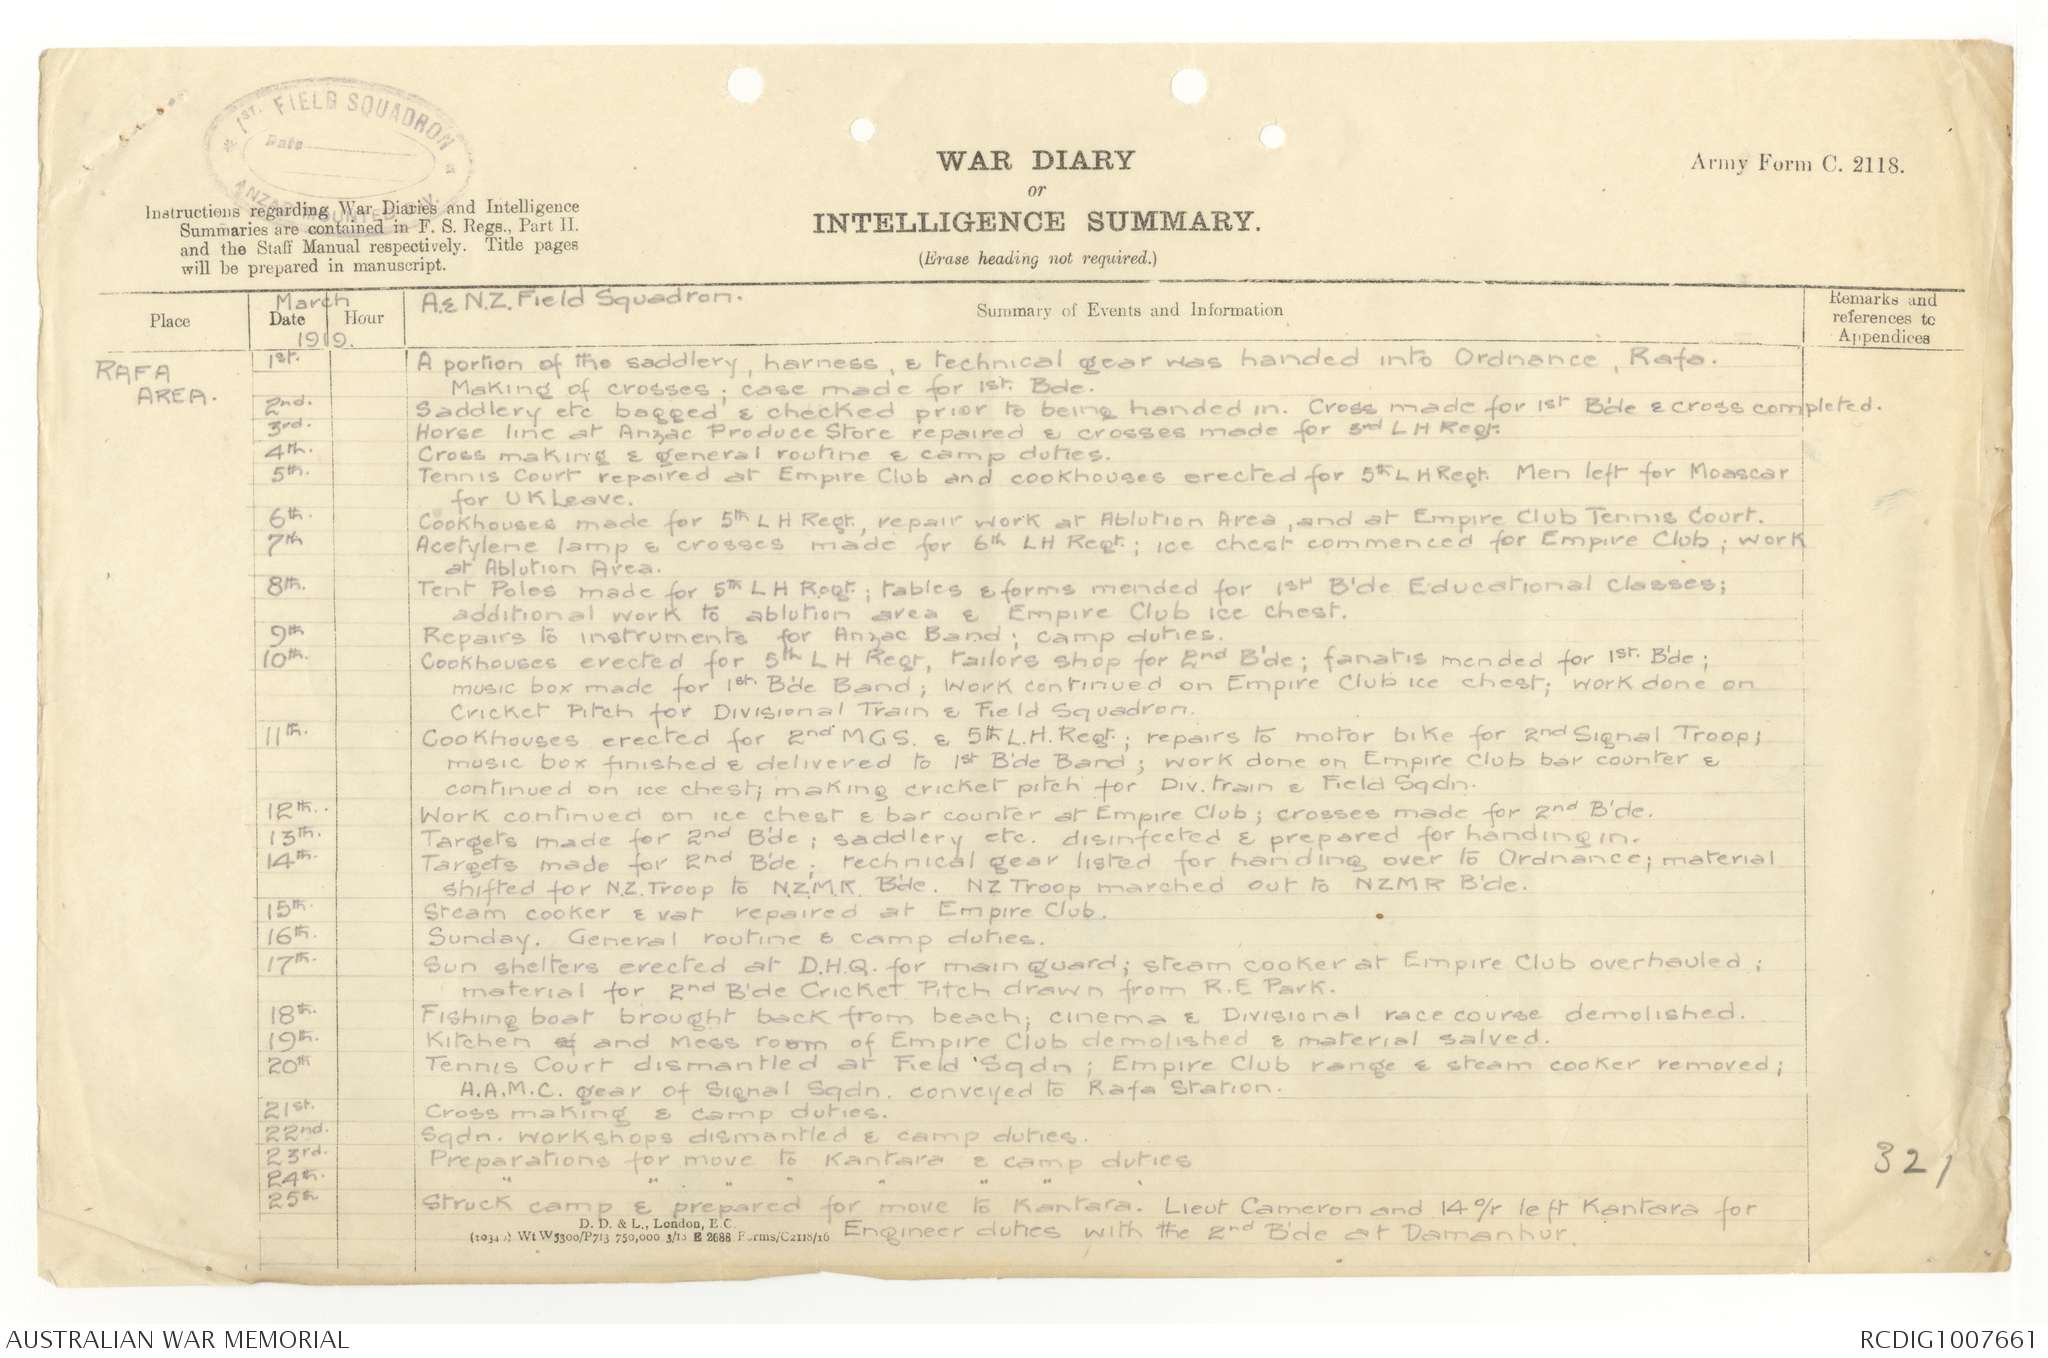 1ST. FIELD SQUADRON
Date
ANZAC MOUNTED DIV.
WAR DIARY
or
INTELLIGENCE SUMMARY.
(Erase heading not required.)
Army Form C. 2118.
Instructions regarding War Diaries and Intelligence
Summaries are contained in F. S. Regs., Part II.
and the Staff Manual respectively. Title pages
will be prepared in manuscript.
Place
March
Date
1919.
Hour
A & N.Z. Field Squadron.
Summary of Events and Information
Remarks and
references to
Appendices
RAFA
AREA.
1st. A portion of the saddlery, harness, & technical gear was handed into Ordnance, Rafa.
Making of crosses; case made for 1st. Bde.
2nd. Saddlery etc bagged & checked prior to being handed in. Cross made for 1st B'de & cross completed.
3rd. Horse line at Anzac Produce Store repaired & crosses made for 3rd L H Regt.
4th. Cross making & general routine & camp duties.
5th. Tennis Court repaired at Empire Club and cookhouses erected for 5th L H Regt. Men left for Moascar
for U K Leave.
6th. Cookhouses made for 5th L H Regt., repair work at Ablution Area, and at Empire Club Tennis Court.
7th Acetylene lamp & crosses made for 6th LH Regt.; ice chest commenced for Empire Club; work
at Ablution Area.
8th. Tent Poles made for 5th L H Regt.; tables & forms mended for 1st B'de Educational classes;
additional work to ablution area & Empire Club ice chest.
9th Repairs to instruments for Anzac Band; camp duties.
10th. Cookhouses erected for 5th L H Regt, tailors shop for 2nd B'de; fanatis mended for 1st. B'de;
music box made for 1st. B'de Band; work continued on Empire Club ice chest; work done on
Cricket Pitch for Divisional Train & Field Squadron.
11th. Cookhouses erected for 2nd MGS. & 5th L.H. Regt.; repairs to motor bike for 2nd Signal Troop;
music box finished & delivered to 1st B'de Band; work done on Empire Club bar counter &
continued on ice chest; making cricket pitch for Div. train & Field Sqdn.
12th. Work continued on ice chest & bar counter at Empire Club; crosses made for 2nd B'de.
13th. Targets made for 2nd B'de; saddlery etc. disinfected & prepared for handing in.
14th. Targets made for 2nd B'de; technical gear listed for handing over to Ordnance; material
shifted for N.Z. Troop to N.Z.M.R. B'de. NZ Troop marched out to NZMR B'de.
15th. Steam cooker & vat repaired at Empire Club.
16th. Sunday. General routine & camp duties.
17th. Sun shelters erected at D.H.Q. for main guard; steam cooker at Empire Club overhauled;
material for 2nd B'de Cricket Pitch drawn from R.E Park.
18th. Fishing boat brought back from beach; cinema & Divisional race course demolished.
19th. Kitchen of and Mess room of Empire Club demolished & material salved.
20th Tennis Court dismantled at Field Sqdn; Empire Club range & steam cooker removed;
A.A.M.C. gear of Signal Sqdn. conveyed to Rafa Station.
21st. Cross making & camp duties.
22nd. Sqdn. workshops dismantled & camp duties.
23rd. Preparations for move to Kantara & camp duties
24th. " " " " " " "
25th Struck camp & prepared for move to Kantara. Lieut Cameron and 14 o/r left Kantara for
Engineer duties with the 2nd B'de at Damanhur.
321
D. D. & L., London, E.C.
(10340) Wt W5300/P713 750,000 3/18 E 2688 Forms/C2118/16
AUSTRALIAN WAR MEMORIAL
RCDIG1007661